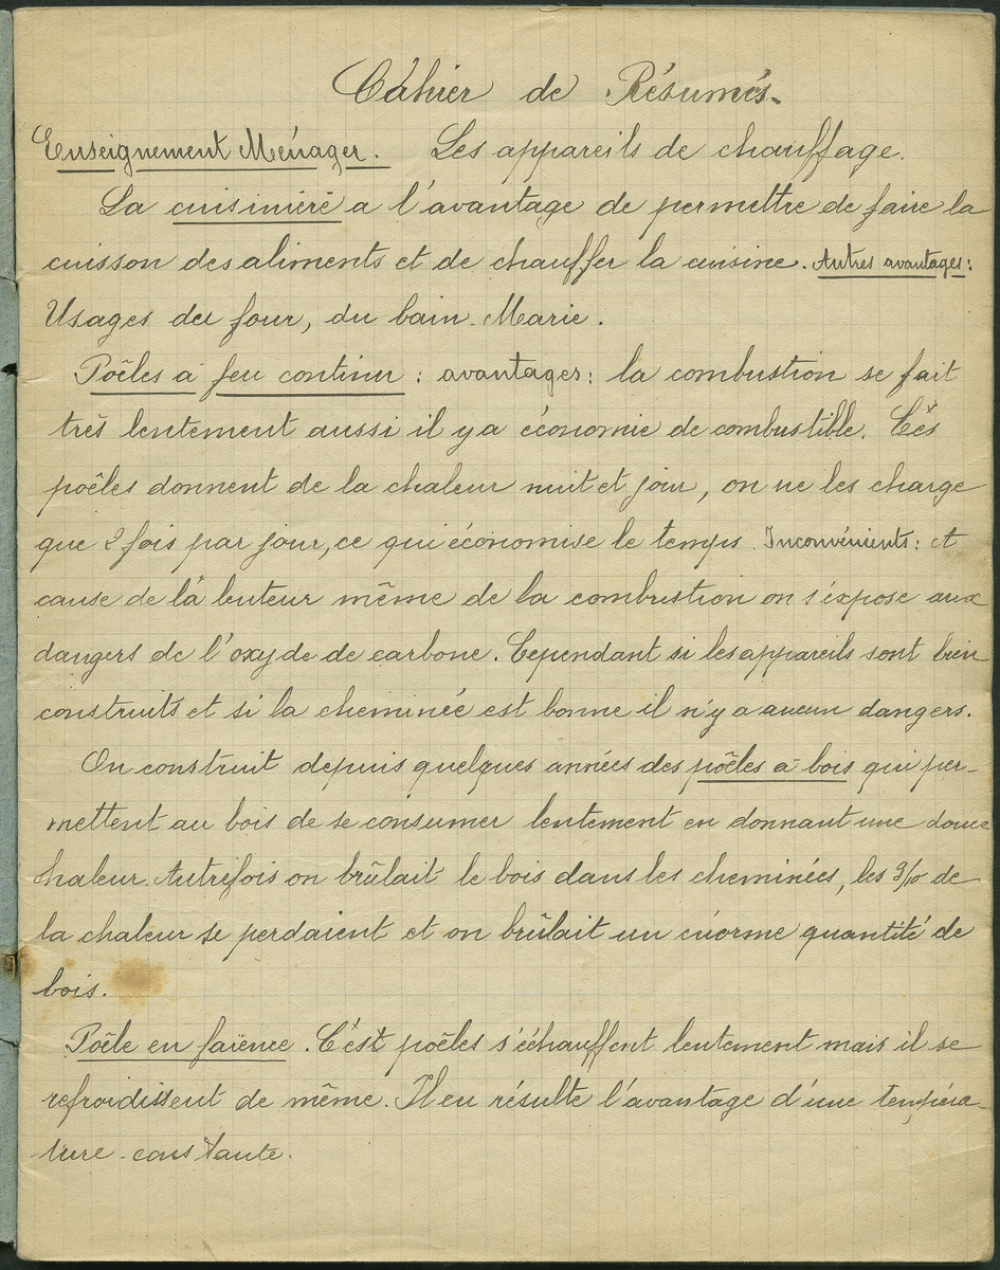 Cahier de Résumés.
Enseignement Ménager. Les appareils de chauffage.
La cuisinière a l'avantage de permettre de faire la
cuisson des aliments et de chauffer la cuisine. Autres avantages:
Usages du four, du bain-Marie.
Poêles à feu continu : avantages : la combustion se fait
très lentement aussi il y a économie de combustible. Cés
poêles donnent de la chaleur nuit et jour, on ne les charge
que 2 fois par jour, ce qui économise le temps. Inconvénients : et
cause de la lenteur même de la combustion on s'éxpose aux
dangers de l'oxyde de carbone. Cependant si les appareils sont bien
construits et si la cheminée est bonne il n'y a aucun dangers.
On construit depuis quelques années des poêles à bois qui per-
mettent au bois de se consumer lentement en donnant une douce
chaleur. Autrefois on brûlait le bois dans les cheminées, les 9/10 de
la chaleur se perdaient et on brûlait un énorme quantité de
bois.
Poêle en faïence. C'est poêles s'échauffent lentement mais il se
refroidissent de même. Il en résulte l'avantage d'une tempéra-
ture constante.